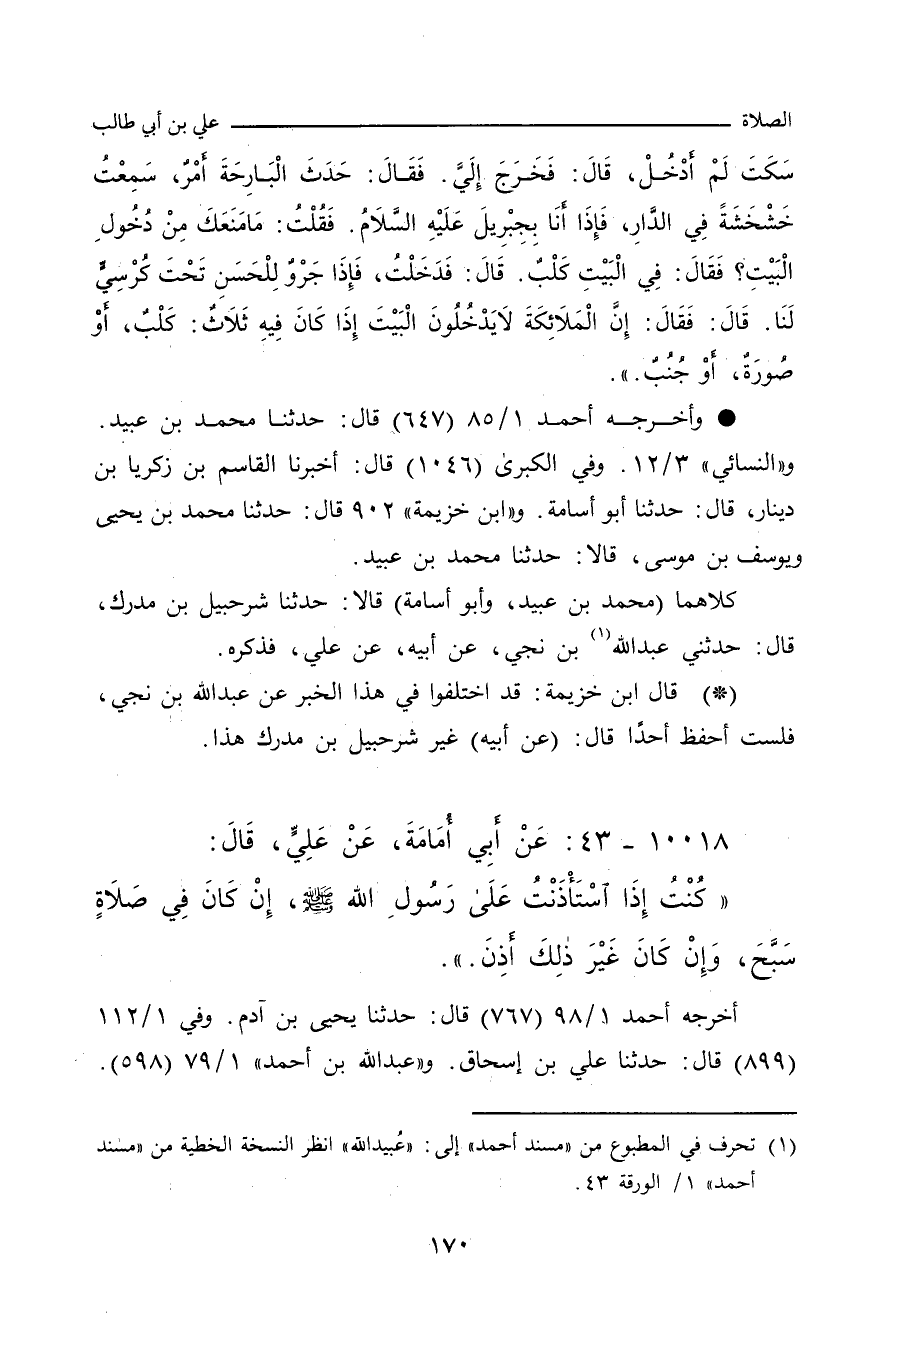 الصلاة علي بن أبي طالب
سَكَتَ لَمْ أَدْخُلْ، قَالَ: فَخَرَجَ إِلَيَّ. فَقَالَ: حَدَثَ الْبَارِحَةَ أَمْرٌ، سَمِعْتُ
خَشْخَشَةً فِي الدَّارِ، فَإِذَا أَنَا بِجِبْرِيلَ عَلَيْهِ السَّلَامُ. فَقُلْتُ: مَامَنَعَكَ مِنْ دُخُولِ
الْبَيْتِ؟ فَقَالَ: فِي الْبَيْتِ كَلْبٌ. قَالَ: فَدَخَلْتُ، فَإِذَا جَرْوٌ لِلْحَسَنِ تَحْتَ كُرْسِيٍّ
لَنَا. قَالَ: فَقَالَ: إِنَّ الْمَلَائِكَةَ لَايَدْخُلُونَ الْبَيْتَ إِذَا كَانَ فِيهِ ثَلَاثٌ: كَلْبٌ، أَوْ
صُورَةٌ، أَوْ جُنُبٌ.».
● وأخرجه أحمد ٨٥/١ (٦٤٧) قال: حدثنا محمد بن عبيد.
و«النسائي» ١٢/٣. وفي الكبرىٰ (١٠٤٦) قال: أخبرنا القاسم بن زكريا بن
دينار، قال: حدثنا أبو أسامة. و«ابن خزيمة» ٩٠٢ قال: حدثنا محمد بن يحيى
ويوسف بن موسى، قالا: حدثنا محمد بن عبيد.
كلاهما (محمد بن عبيد، وأبو أسامة) قالا: حدثنا شرحبيل بن مدرك،
قال: حدثني عبدالله(١) بن نجي، عن أبيه، عن علي، فذكره.
(*) قال ابن خزيمة: قد اختلفوا في هذا الخبر عن عبدالله بن نجي،
فلست أحفظ أحدًا قال: (عن أبيه) غير شرحبيل بن مدرك هذا.
١٠٠١٨ - ٤٣: عَنْ أَبِي أُمَامَةَ، عَنْ عَلِيٍّ، قَالَ:
« كُنْتُ إِذَا ٱسْتَأْذَنْتُ عَلَىٰ رَسُولِ الله ﷺ، إِنْ كَانَ فِي صَلَاةٍ
سَبَّحَ، وَإِنْ كَانَ غَيْرَ ذٰلِكَ أَذِنَ.».
أخرجه أحمد ٩٨/١ (٧٦٧) قال: حدثنا يحيى بن آدم. وفي ١١٢/١
(٨٩٩) قال: حدثنا علي بن إسحاق. و«عبدالله بن أحمد» ٧٩/١ (٥٩٨).
(١) تحرف في المطبوع من «مسند أحمد» إلى: «عُبيدالله» انظر النسخة الخطية من «مسند
أحمد» ١/ الورقة ٤٣.
١٧٠